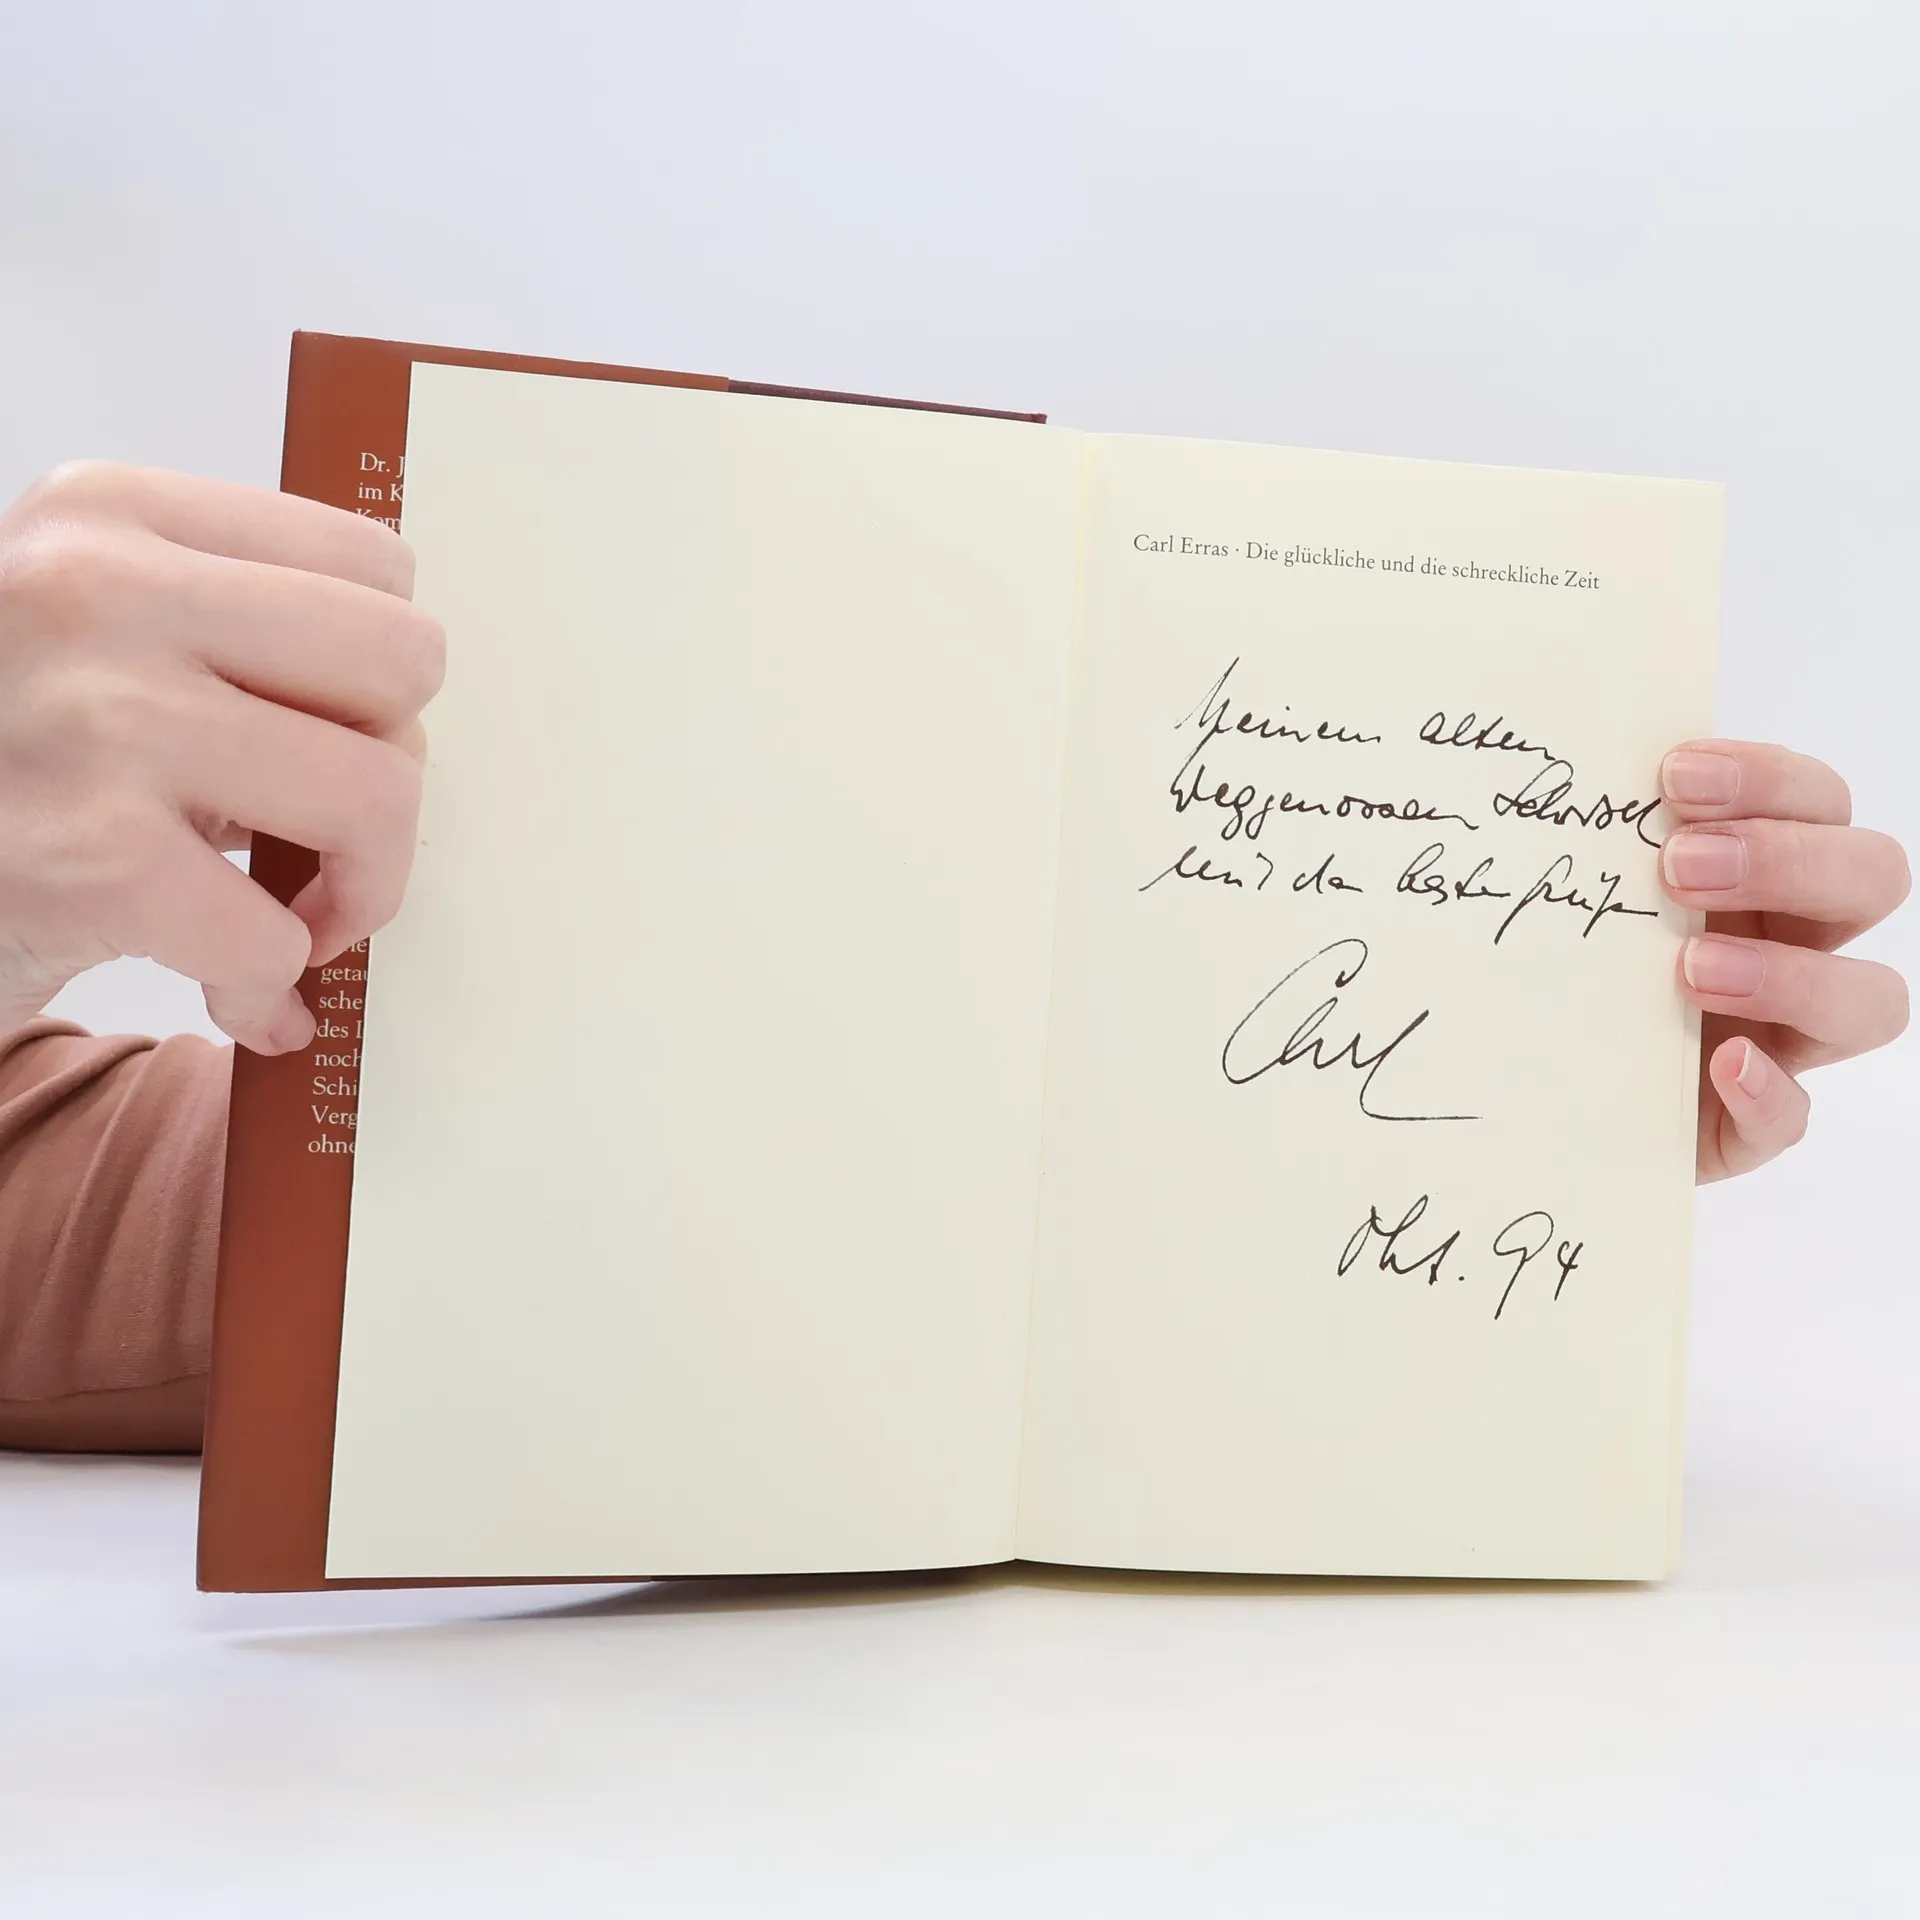 Dr. J
im K
Kom
ne
getau
sche
des I
noch
Schi
Verg
ohne
Carl Erras · Die glückliche und die schreckliche Zeit
Meinem alten
Weggenossen
mit den besten Grüßen
Carl
Okt. 94